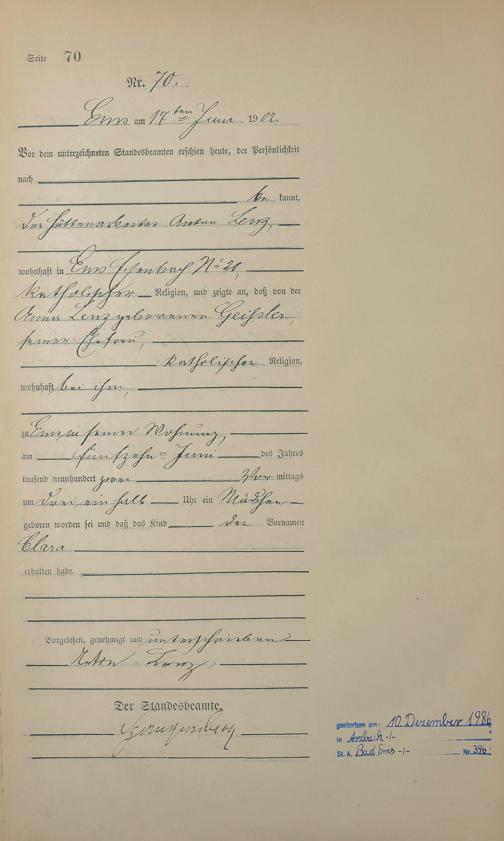 Seite 70
Nr. 70.
Ems am 17ten Juni 1902.
Vor dem unterzeichneten Standesbeamten erschien heute, der Persönlichkeit
nach
be kannt,
der Hüttenarbeiter Anton Lenz,
wohnhaft in Ems Eisenbach No 20,
katholischer Religion, und zeigte an, daß von der
Anna Lenz geborenen Geissler,
seiner Ehefrau,
katholischer Religion,
wohnhaft bei ihm,
zu Ems in seiner Wohnung,
am fünfzehnten Juni des Jahres
tausend neunhundert zwei Vor mittags
um drei ein halb Uhr ein Mädchen
geboren worden sei und daß das Kind den Vornamen
Clara
erhalten habe.
Vorgelesen, genehmigt und unterschrieben
Anton Lenz,
Der Standesbeamte,
gestorben am: 10 Dezember 1986
in Arzbach -/-
St. A. Bad Ems -/- Nr. 396